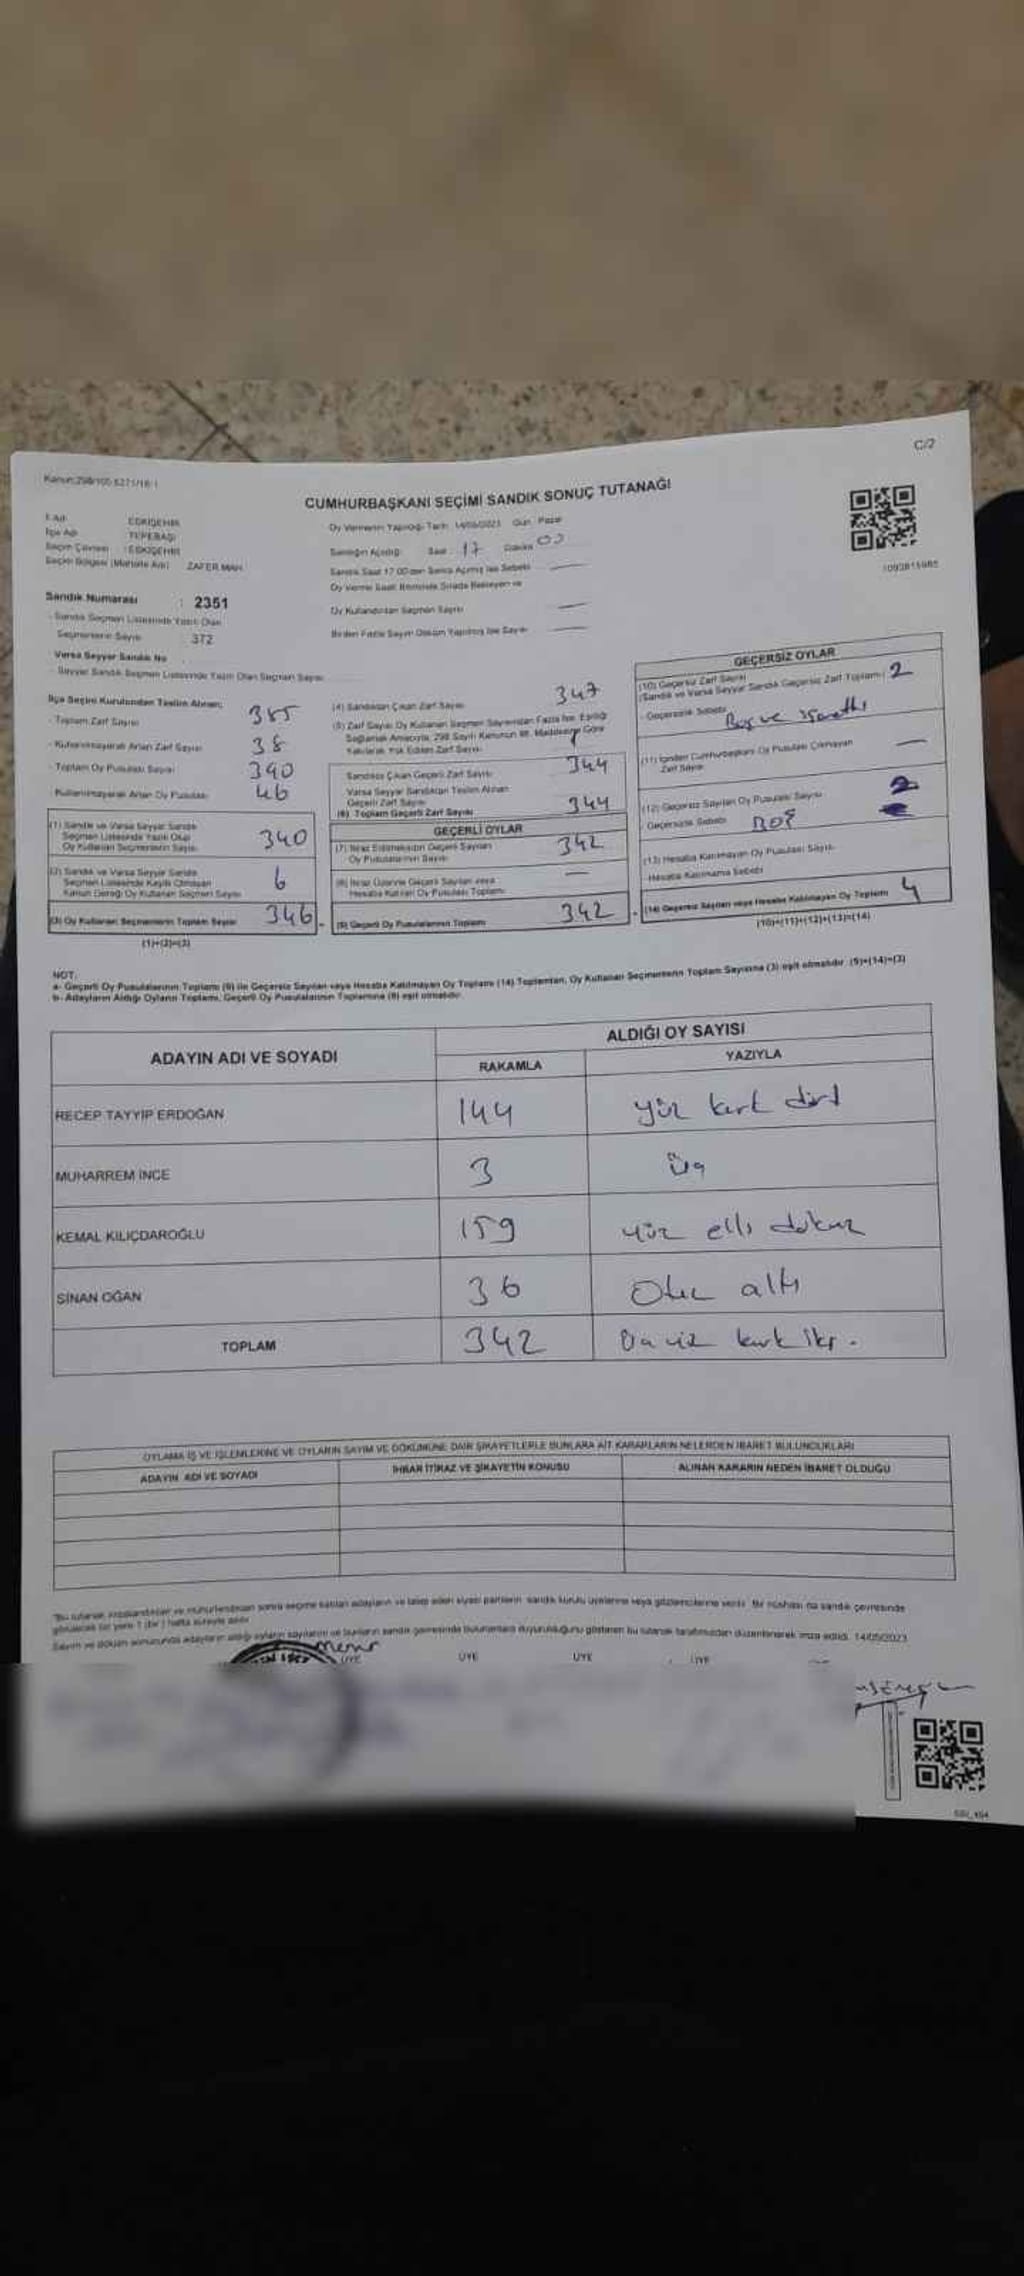 C/2
Kanun:298/105 6271/18-1
CUMHURBAŞKANI SEÇİMİ SANDIK SONUÇ TUTANAĞI
İl Adı : ESKİŞEHİR
İlçe Adı : TEPEBAŞI
Seçim Çevresi : ESKİŞEHİR
Seçim Bölgesi (Mahalle Adı) : ZAFER MAH.
Oy Vermenin Yapıldığı Tarih : 14/05/2023 Gün : Pazar
Sandığın Açıldığı Saat : 17 Dakika 00
Sandık Saat 17.00'den Sonra Açılmış İse Sebebi
Oy Verme Saati Bitiminde Sırada Bekleyen ve
Oy Kullandırılan Seçmen Sayısı
Birden Fazla Sayım Döküm Yapılmış İse Sayısı
1093815985
Sandık Numarası : 2351
- Sandık Seçmen Listesinde Yazılı Olan
Seçmenlerin Sayısı : 372
Varsa Seyyar Sandık No
- Seyyar Sandık Seçmen Listesinde Yazılı Olan Seçmen Sayısı
İlçe Seçim Kurulundan Teslim Alınan;
- Toplam Zarf Sayısı 385
- Kullanılmayarak Artan Zarf Sayısı 38
- Toplam Oy Pusulası Sayısı 390
- Kullanılmayarak Artan Oy Pusulası 46
(1) Sandık ve Varsa Seyyar Sandık
Seçmen Listesinde Yazılı Olup
Oy Kullanan Seçmenlerin Sayısı 340
(2) Sandık ve Varsa Seyyar Sandık
Seçmen Listesinde Kayıtlı Olmayan
Kanun Gereği Oy Kullanan Seçmen Sayısı 6
(3) Oy Kullanan Seçmenlerin Toplam Sayısı 346
(1)+(2)=(3)
(4) Sandıktan Çıkan Zarf Sayısı 347
(5) Zarf Sayısı Oy Kullanan Seçmen Sayısından Fazla İse, Eşitliği
Sağlamak Amacıyla, 298 Sayılı Kanunun 98. Maddesine Göre
Yakılarak Yok Edilen Zarf Sayısı 1
Sandıktan Çıkan Geçerli Zarf Sayısı 344
Varsa Seyyar Sandıktan Teslim Alınan
Geçerli Zarf Sayısı
(6) Toplam Geçerli Zarf Sayısı 344
GEÇERLİ OYLAR
(7) İtiraz Edilmeksizin Geçerli Sayılan
Oy Pusulalarının Sayısı 342
(8) İtiraz Üzerine Geçerli Sayılan veya
Hesaba Katılan Oy Pusulası Toplamı
(9) Geçerli Oy Pusulalarının Toplamı 342
GEÇERSİZ OYLAR
(10) Geçersiz Zarf Sayısı
(Sandık ve Varsa Seyyar Sandık Geçersiz Zarf Toplamı) 2
- Geçersizlik Sebebi Boş ve işaretli
(11) İçinden Cumhurbaşkanı Oy Pusulası Çıkmayan
Zarf Sayısı
(12) Geçersiz Sayılan Oy Pusulası Sayısı 2
- Geçersizlik Sebebi BOŞ
(13) Hesaba Katılmayan Oy Pusulası Sayısı
- Hesaba Katılmama Sebebi
(14) Geçersiz Sayılan veya Hesaba Katılmayan Oy Toplamı 4
(10)+(11)+(12)+(13)=(14)
NOT:
a- Geçerli Oy Pusulalarının Toplamı (9) ile Geçersiz Sayılan veya Hesaba Katılmayan Oy Toplamı (14) Toplamları, Oy Kullanan Seçmenlerin Toplam Sayısına (3) eşit olmalıdır. (9)+(14)=(3)
b- Adayların Aldığı Oyların Toplamı, Geçerli Oy Pusulalarının Toplamına (9) eşit olmalıdır.
ADAYIN ADI VE SOYADI
ALDIĞI OY SAYISI
RAKAMLA YAZIYLA
RECEP TAYYİP ERDOĞAN 144 yüz kırk dört
MUHARREM İNCE 3 üç
KEMAL KILIÇDAROĞLU 159 yüz elli dokuz
SİNAN OĞAN 36 Otuz altı
TOPLAM 342 kırk iki.
OYLAMA İŞ VE İŞLEMLERİNE VE OYLARIN SAYIM VE DÖKÜMÜNE DAİR ŞİKAYETLERLE BUNLARA AİT KARARLARIN NELERDEN İBARET BULUNDUKLARI
ADAYIN ADI VE SOYADI İHBAR İTİRAZ VE ŞİKAYETİN KONUSU ALINAN KARARIN NEDEN İBARET OLDUĞU
"Bu tutanak imzalandıktan ve mühürlendikten sonra seçime katılan adayların ve talep eden siyasi partilerin sandık kurulu üyelerine veya gözlemcilerine verilir. Bir nüshası da sandık çevresinde
görülecek bir yere 1 (bir) hafta süreyle asılır.
Sayım ve döküm sonucunda adayların aldığı oyların sayılarını ve bunların sandık çevresinde bulunanlara duyurulduğunu gösteren bu tutanak tarafımızdan düzenlenerek imza edildi. 14/05/2023
ÜYE ÜYE ÜYE ÜYE